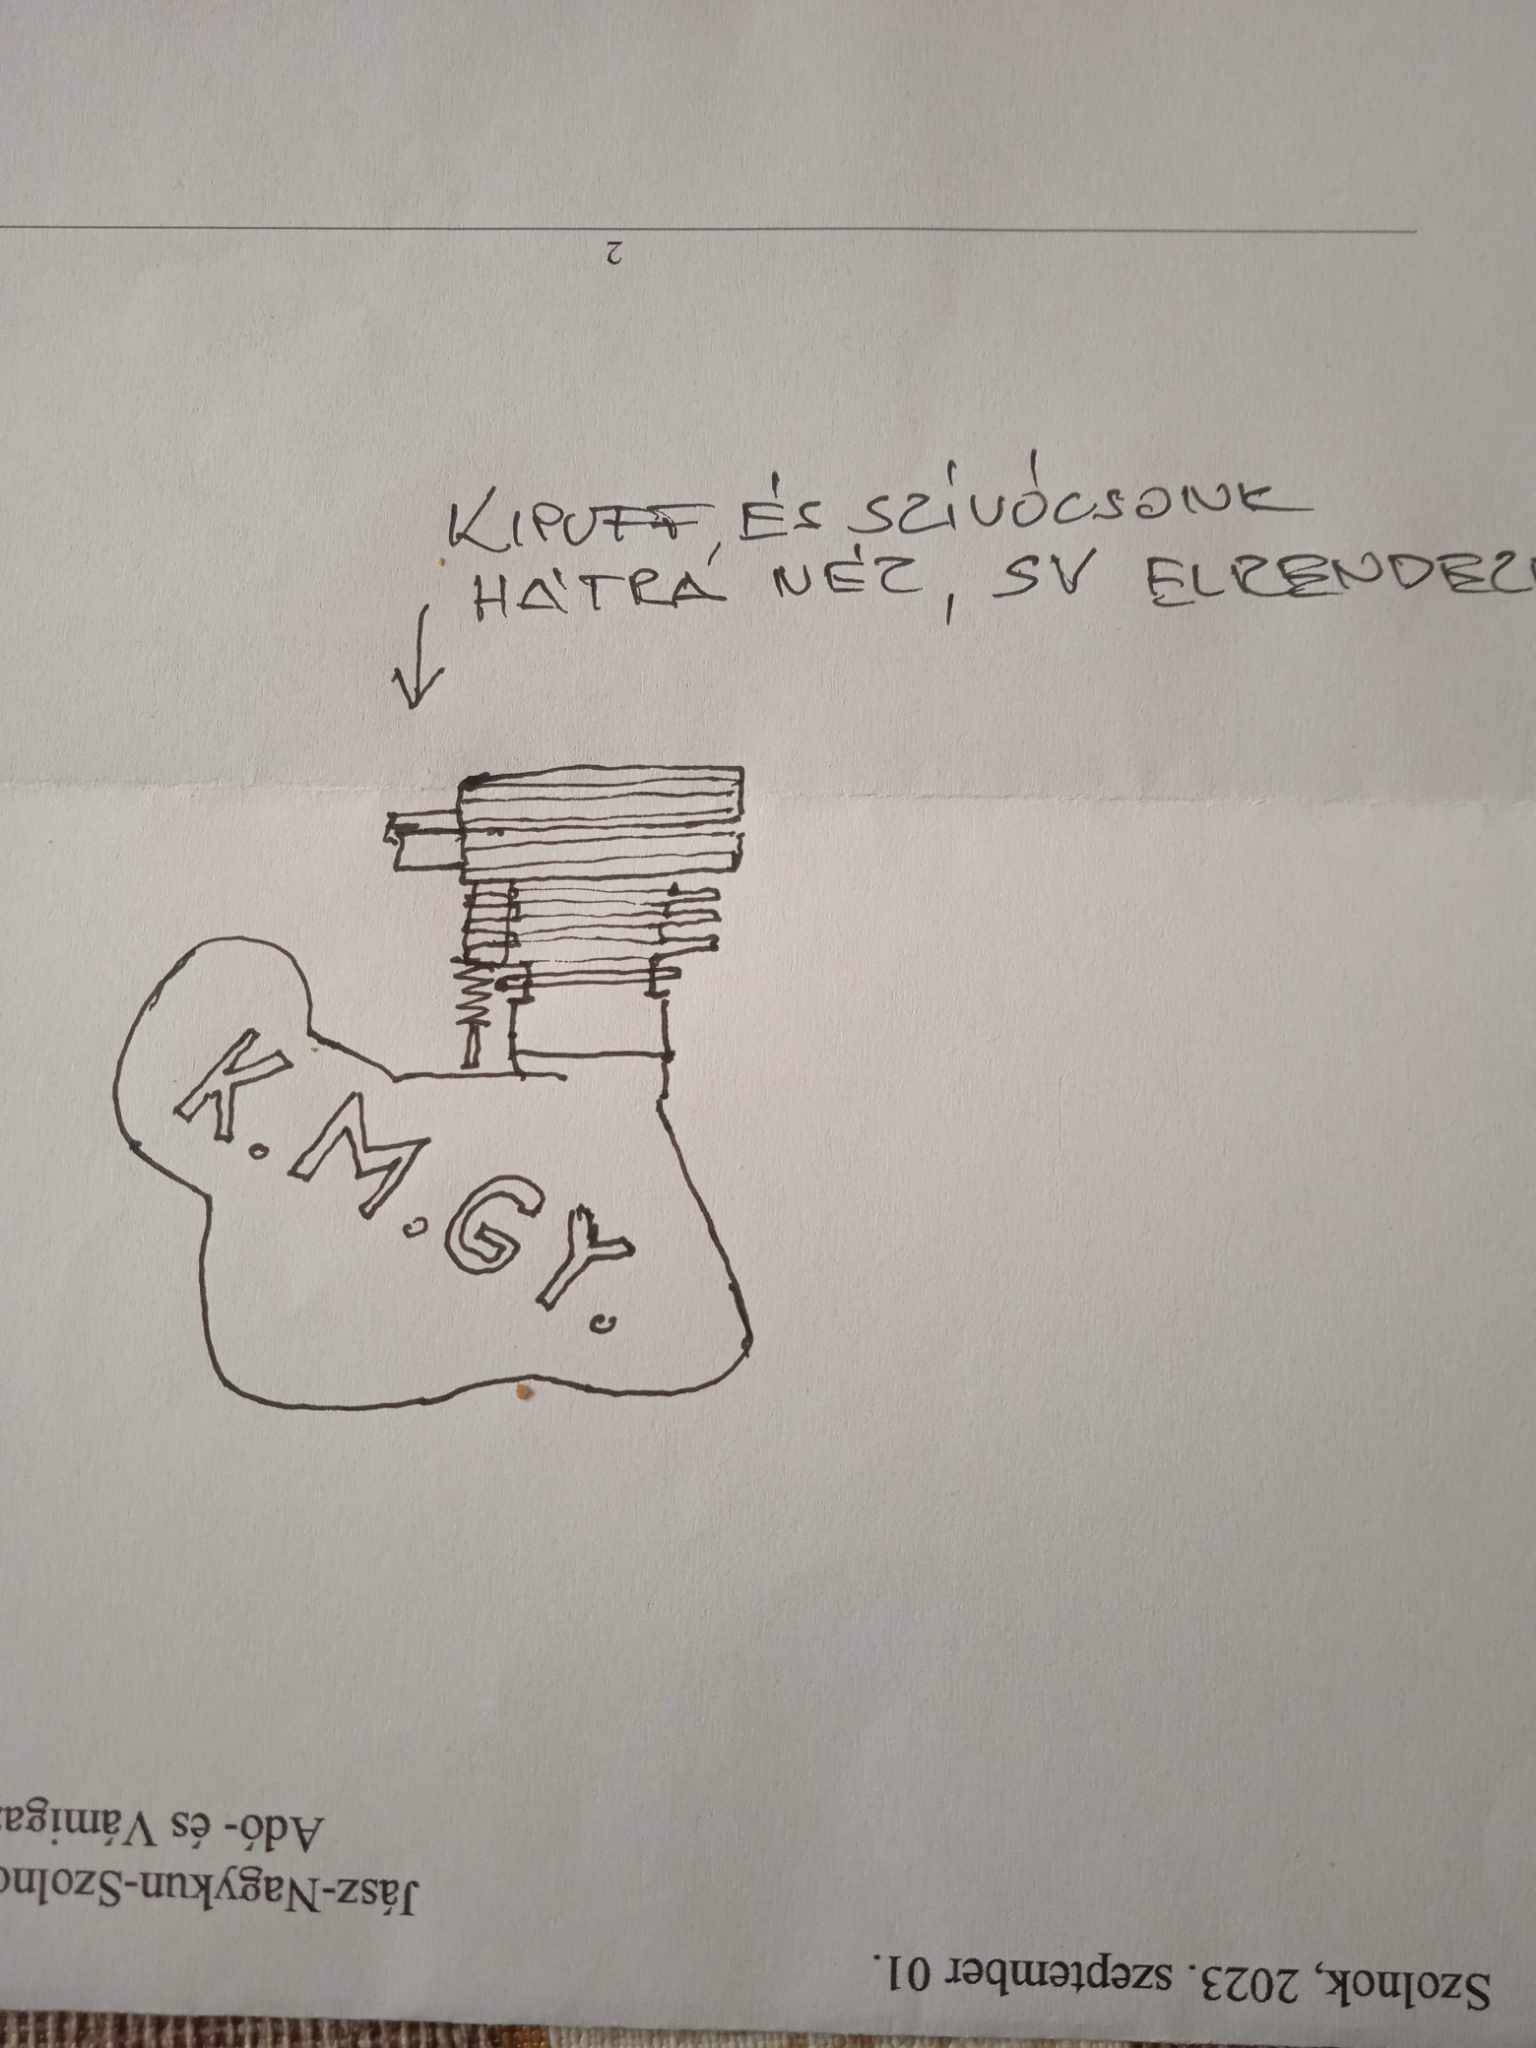 2
KIPUFF, ÉS SZÍVÓCSONK
HÁTRA NÉZ, SV ELRENDEZ
K.M.GY.
Szolnok, 2023. szeptember 01.
Jász-Nagykun-Szolno
Adó- és Vámiga